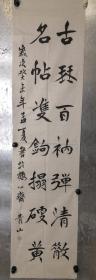 古琴百衲彈清散
名帖雙鉤搨硬黃
歲次癸未年孟夏書於 心齋 青山